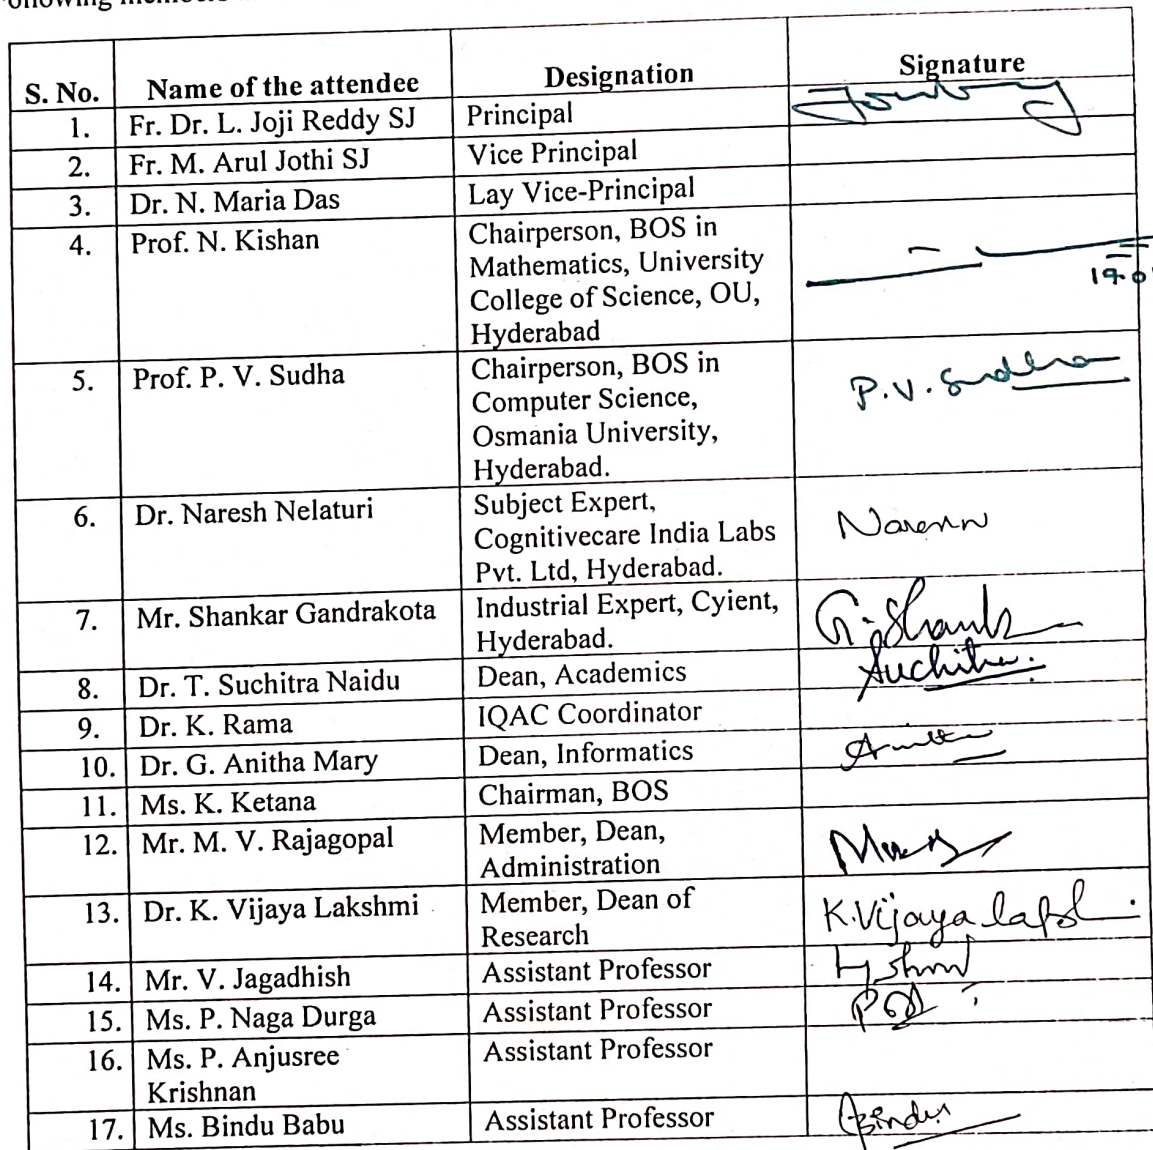 S. No. Name of the attendee Designation Signature
1. Fr. Dr. L. Joji Reddy SJ Principal
2. Fr. M. Arul Jothi SJ Vice Principal
3. Dr. N. Maria Das Lay Vice-Principal
4. Prof. N. Kishan Chairperson, BOS in
Mathematics, University
College of Science, OU,
Hyderabad
5. Prof. P. V. Sudha Chairperson, BOS in P.V. Sudha
Computer Science,
Osmania University,
Hyderabad.
6. Dr. Naresh Nelaturi Subject Expert,
Cognitivecare India Labs
Pvt. Ltd, Hyderabad.
7. Mr. Shankar Gandrakota Industrial Expert, Cyient,
Hyderabad.
8. Dr. T. Suchitra Naidu Dean, Academics Suchitra
9. Dr. K. Rama IQAC Coordinator
10. Dr. G. Anitha Mary Dean, Informatics
11. Ms. K. Ketana Chairman, BOS
12. Mr. M. V. Rajagopal Member, Dean,
Administration
13. Dr. K. Vijaya Lakshmi Member, Dean of K. Vijaya
Research
14. Mr. V. Jagadhish Assistant Professor
15. Ms. P. Naga Durga Assistant Professor
16. Ms. P. Anjusree Assistant Professor
Krishnan
17. Ms. Bindu Babu Assistant Professor Bindu